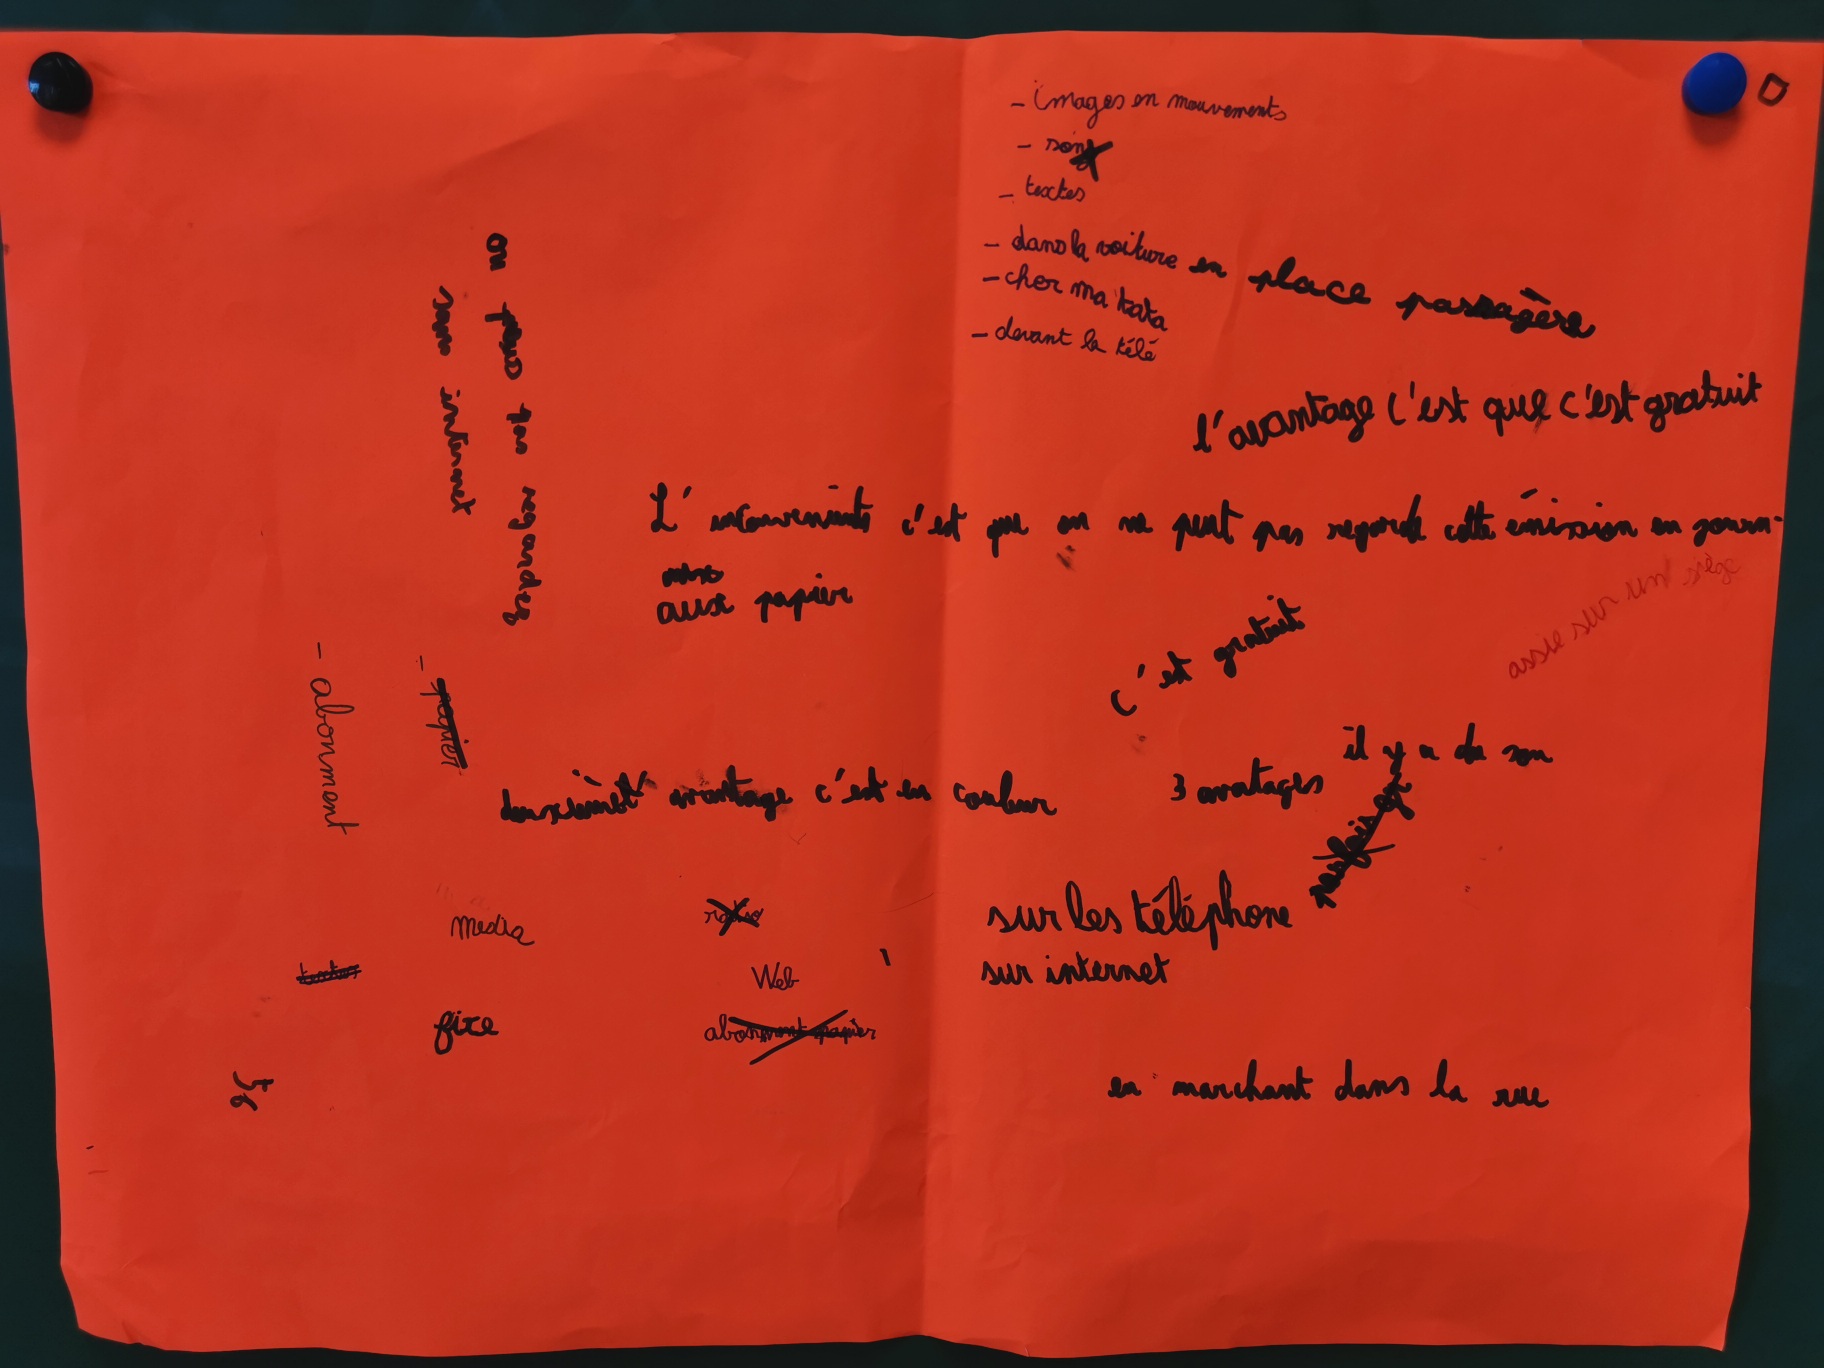 - images en mouvements
- son
- textes
- dans la voiture en place passagère
- cher ma tata
- devant la télé
l'avantage c'est que c'est gratuit
L'inconvenients c'est que on ne peut pas regarde cette émission en journ-
aux papier
assie sur un siège
c'est gratuit
on peus pas regardes
sans internet
- papier
- abonment
deuxièment avantage c'est en couleur
3 avatages
il y a du son
parfois
media
radio
sur les téléphone
textes
Web
sur internet
fixe
abonment papier
en marchant dans la rue